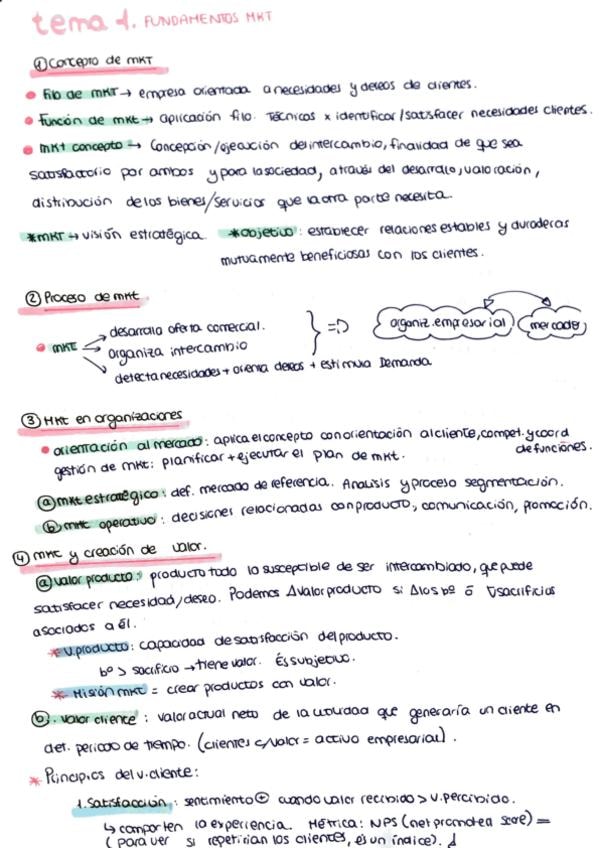 tema 1. FUNDAMENTOS MKT
① Concepto de MKT
• Filo de MKT → empresa orientada a necesidades y deseos de clientes.
• Función de mkt → aplicación filo. Técnicas x identificar/satisfacer necesidades clientes.
• MKT concepto → Concepción/ejecución del intercambio, finalidad de que sea
satisfactorio por ambos y para la sociedad, a través del desarrollo, valoración,
distribución de los bienes/servicios que la otra parte necesita.
*MKT → visión estratégica. *objetivo: establecer relaciones estables y duraderas
mutuamente beneficiosas con los clientes.
② Proceso de mkt.
• MKT
→ desarrolla oferta comercial.
→ organiza intercambio
→ detecta necesidades + orienta deseos + estimula Demanda
} =D
organiz. empresarial
mercados
③ Mkt en organizaciones
• orientación al mercado: aplica el concepto con orientación al cliente, compet. y coord
de funciones.
gestión de mkt: planificar + ejecutar el plan de mkt.
ⓐ mkt estratégico: def. mercado de referencia. Analisis y proceso segmentación.
ⓑ mkt operativo: decisiones relacionadas con producto, comunicación, promoción.
④ mkt y creación de valor.
ⓐ valor producto: producto todo lo susceptible de ser intercambiado, que puede
satisfacer necesidad/deseo. Podemos Δ valor producto si Δ los bº ō ∇ sacrificios
asociados a él.
* V. producto: capacidad de satisfacción del producto.
bº > sacrificio → tiene valor. És subjetivo.
* Misión mkt = crear productos con valor.
ⓑ. valor cliente: valor actual neto de la que generaría un cliente en
det. periodo de tiempo. (clientes c/valor = activo empresarial).
* Principios del v. cliente:
1. Satisfacción: sentimiento ⊕ cuando valor recibido > v. percibido.
↳ comparten la experiencia. Métrica: NPS (net promotea score) =
(para ver si repetirian los clientes, és un índice).